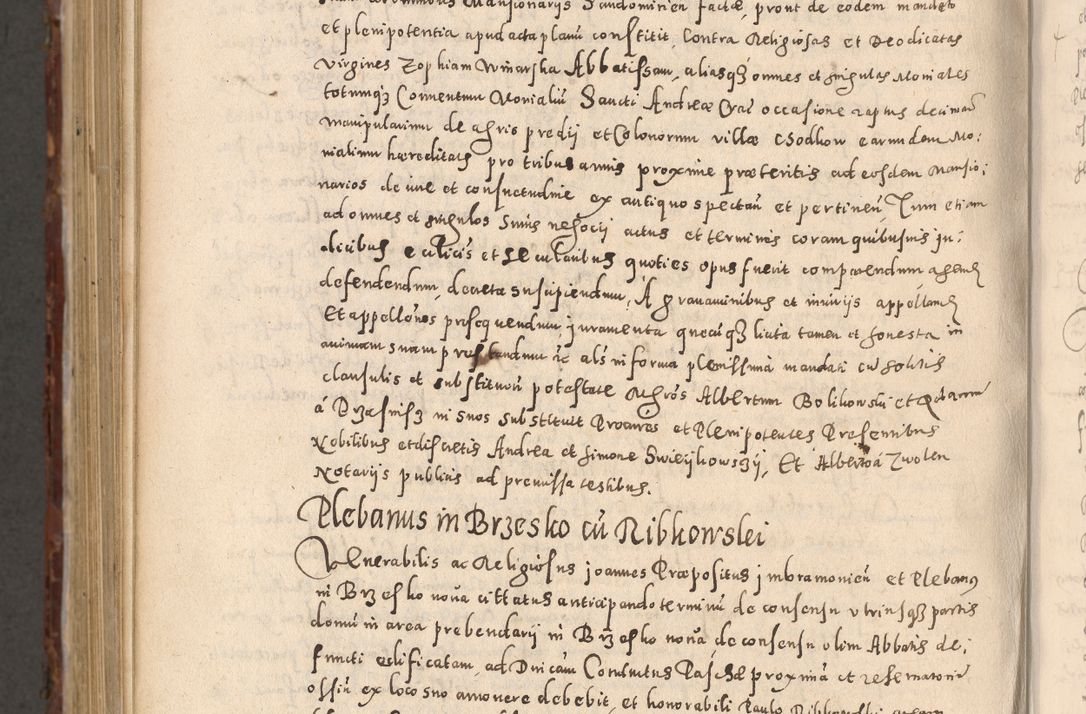 et plenipotentia apud acta planū constitit, Contra Religiosas et Deodicatas
Virgines Zophiam Winarska Abbatissam, aliasq3 omnes et singulas Moniales
totumq3 Conventum Monialiū Sancti Andreæ Crac̄ occasione raptus decimarū
manipularium de agris predij et Colonorum villæ earundem Mo:
nialium hæreditats pro tribus annis proxime præteritis ad eosdem Mansio:
narios de iure et consuetudine ex antiquo spectan̄ et pertinen̄, Tum etiam
ad omnes et singulos suos negocij actus et terminos coram quibusuis ju:
dicibus et secularibus quoties opus fuerit comparendum, agend
defendendum, decreta suscipiendum, A gravaminibus et iniurijs appelland
Et appellōnes prosequendum, juramenta quecūq3 licita tamen et honesta in
animam suam prestandum &c als in forma plenissima mandati cū solitis
clausulis et substituen̄ potestate Albertum Bolikowski et
á Brzesnic3 in suos substituit Procūres et Plenipotentes Presentibus
Nobilibus et discretis Andrea et Simone, Et Alberto á Zwolen
Notarijs publicis ad premissa testibus.
Plebanus in Brzesko cū Ribkowskei
Venerabilis ac Religiosus joannes Præpositus jmbramonien̄ et Plebanus
in Brzesko noua citatus anticipando terminū de consensu utriusq3 partis
domū in area prebendarij in Brzesko noua, de consensu olim Abbatis de:
functi edificatam, ad Dnicam Conductus Paschæ proximā et
ex loco suo amouere debebit, et honorabili Paulo Ribkowski